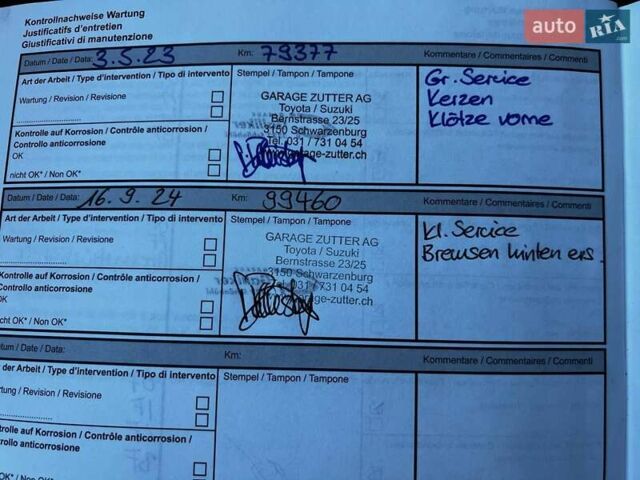 Kontrollnachweise Wartung
Justificatifs d'entretien
Giustificativi di manutenzione
auto RIA.com
Datum / Date / Data: 3.5.23 Km: 79377 Kommentare / Commentaires / Commenti
Art der Arbeit / Type d'intervention / Tipo di intervento
Stempel / Tampon / Tampone
Wartung / Revision / Revisione
Kontrolle auf Korrosion / Contrôle anticorrosion /
Controllo anticorrosione
OK
nicht OK* / Non OK*
GARAGE ZUTTER AG
Toyota / Suzuki
Bernstrasse 23/25
3150 Schwarzenburg
Tel. 031 / 731 04 54
garage-zutter.ch
Gr. Service
Kerzen
Klötze vorne
Datum / Date / Data: 16.9.24 Km: 99460 Kommentare / Commentaires / Commenti
Art der Arbeit / Type d'intervention / Tipo di intervento
Stempel / Tampon / Tampone
Wartung / Revision / Revisione
Kontrolle auf Korrosion / Contrôle anticorrosion /
Controllo anticorrosione
OK
nicht OK* / Non OK*
GARAGE ZUTTER AG
Toyota / Suzuki
Bernstrasse 23/25
3150 Schwarzenburg
Tel. 031 / 731 04 54
garage-zutter.ch
kl. Service
Bremsen hinten ers.
tum / Date / Data: Km: Kommentare / Commentaires / Commenti
der Arbeit / Type d'intervention / Tipo di intervento
Stempel / Tampon / Tampone
rtung / Revision / Revisione
trolle auf Korrosion / Contrôle anticorrosion /
trollo anticorrosione
OK* / Non OK*